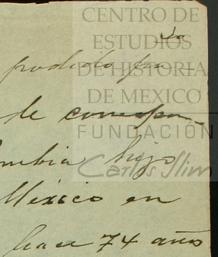 CENTRO DE
ESTUDIOS
DE HISTORIA
DE MEXICO
FUNDACIÓN
Carlos Slim
podido
de correspon-
hijo
México en
hace 74 años